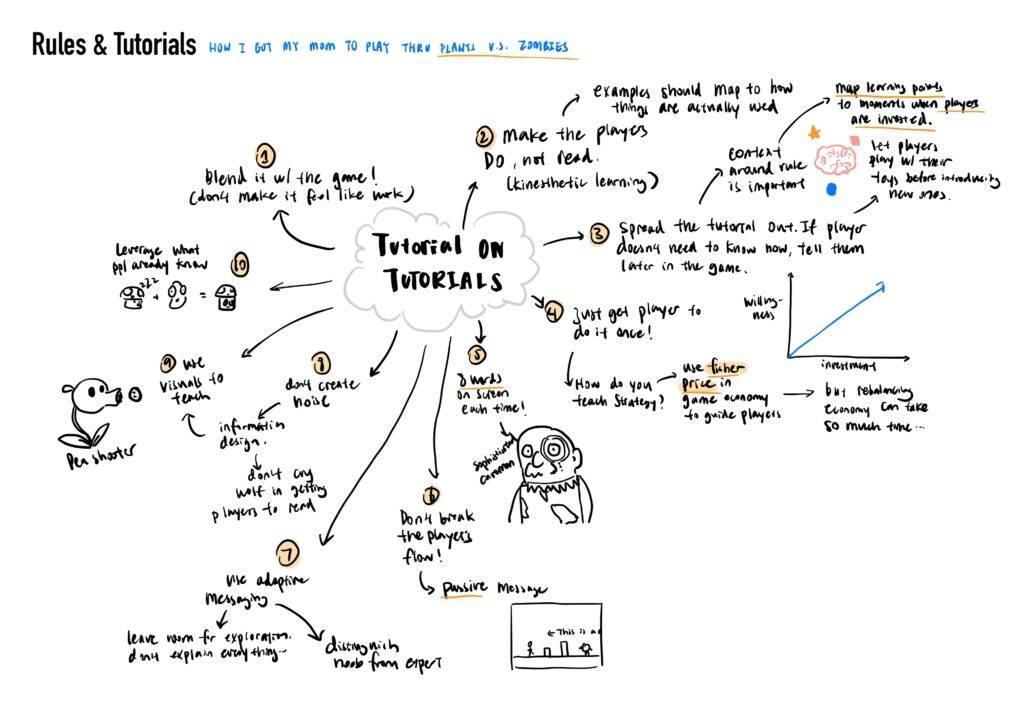 Rules & Tutorials
HOW I GOT MY MOM TO PLAY THRU PLANTS V.S. ZOMBIES
TUTORIAL ON
TUTORIALS
1
Blend it w/ the game!
(don't make it feel like work)
2
Make the players
DO, not read.
(kinesthetic learning)
examples should map to how
things are actually used
3
Spread the tutorial out. If player
doesn't need to know now, tell them
later in the game.
context
around rule
is important
map learning points
to moments when players
are invested.
let players
play w/ their
toys before introducing
new ones.
4
Just get player to
do it once!
How do you
teach strategy?
use fisher
price in
game economy
to guide players
but rebalancing
economy can take
so much time...
willing-
ness
investment
5
8 words
on screen
each time!
sophisticated
caveman
6
Don't break
the player's
flow!
passive message
← This is a
7
use adaptive
messaging
leave room for exploration.
don't explain everything...
distinguish
noob from expert
8
don't create
noise
information
design.
don't cry
wolf in getting
players to read
9
use
visuals to
teach
Pea shooter
10
Leverage what
ppl already know
zzz
+ =